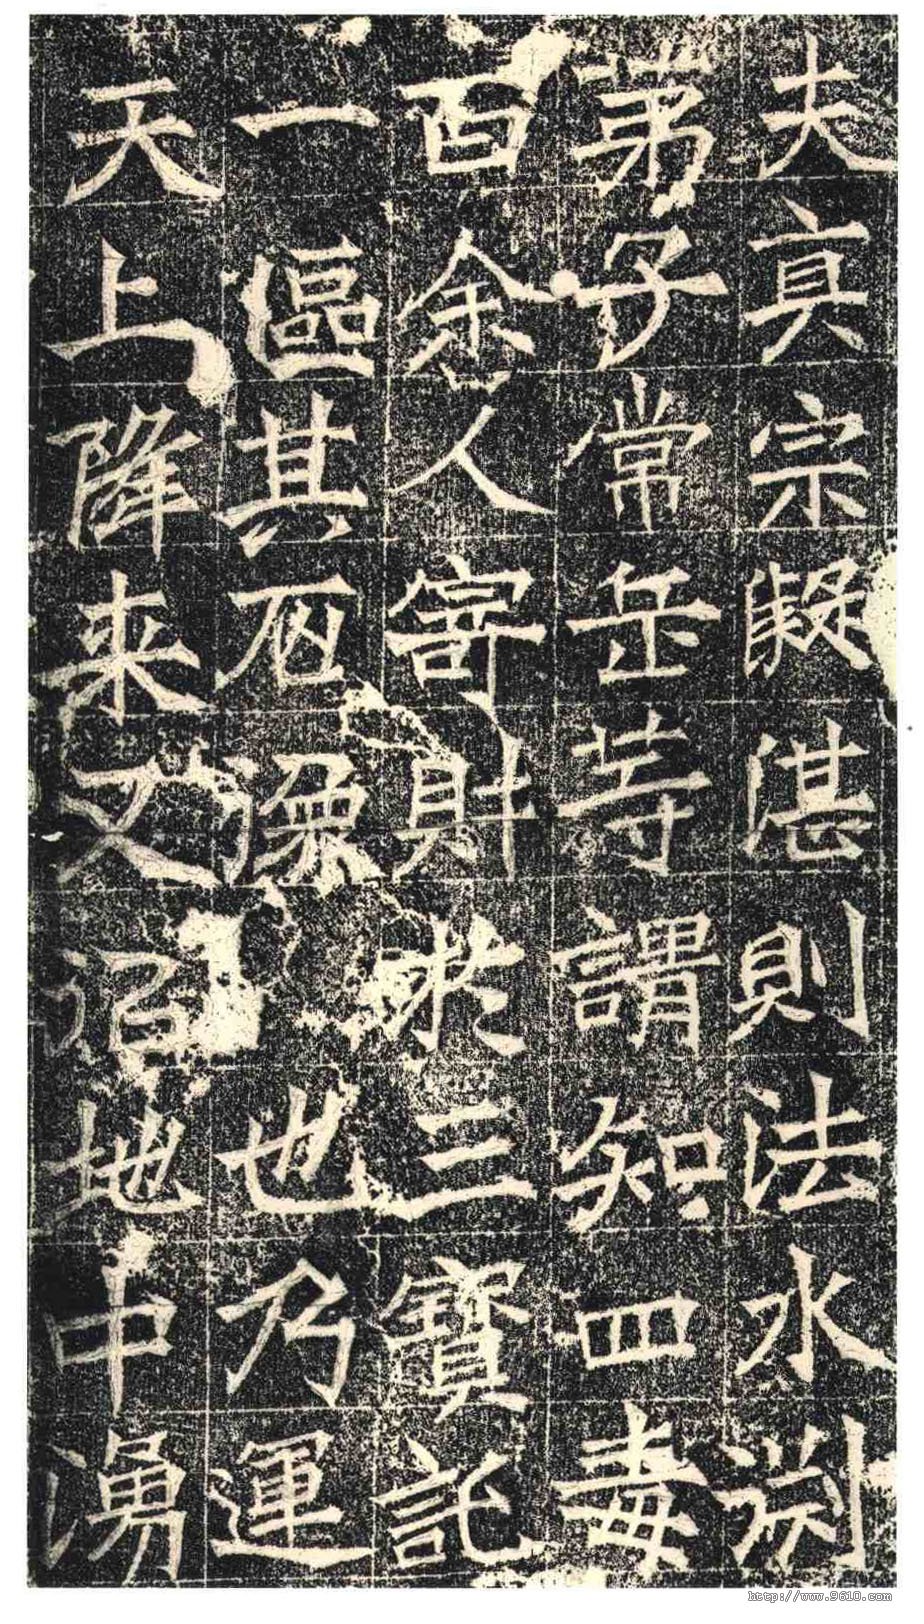 夫真宗凝湛則法水渕
苐子常岳等謂知四毒
百余人寄財於三寳託
一區其石像也乃運
天上降来又沼地中湧
http://www.9610.com